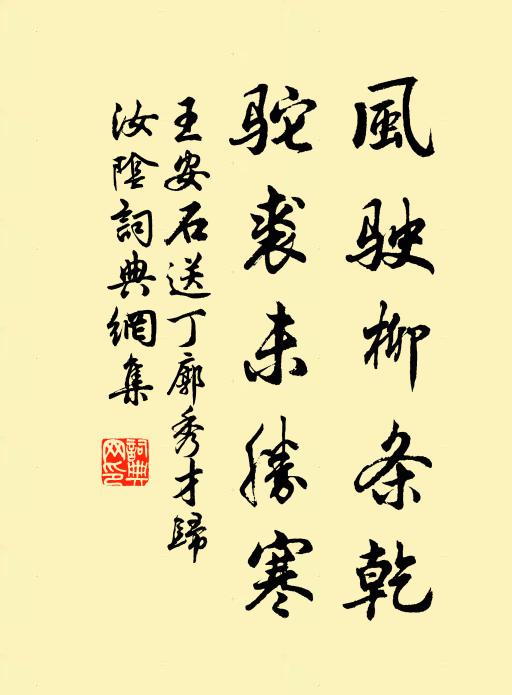 風駛柳条乾
驼裘未勝寒
王安石送丁廓秀才歸
汝陰詞典網集
詞典
网印